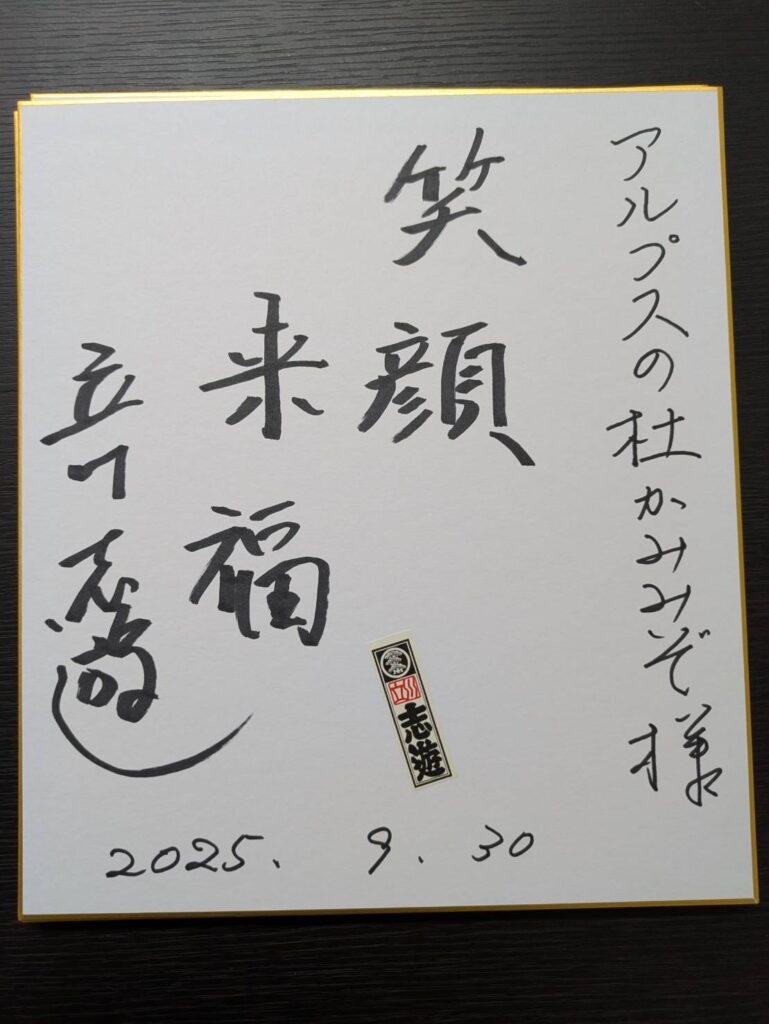 アルプスの杜かみみぞ様
笑顔
来福
立川志遊
立川
志遊
2025. 9. 30